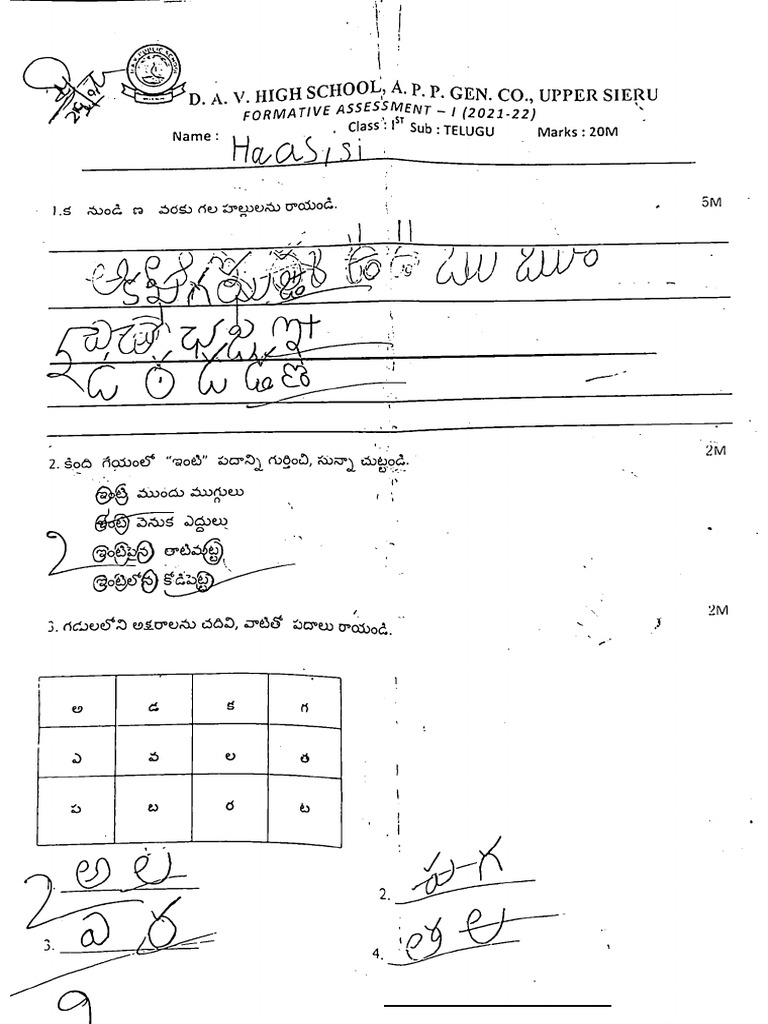 D. A. V. HIGH SCHOOL, A. P. P. GEN. CO., UPPER SIERU
FORMATIVE ASSESSMENT – I (2021-22)
Name : Class : IST Sub : TELUGU Marks : 20M
1.క నుండి ణ వరకు గల హల్లులను రాయండి. 5M
5
డ ఠ డ ఢ ణ
2. కింది గేయంలో "ఇంటి" పదాన్ని గుర్తించి, సున్నా చుట్టండి. 2M
ఇంటి ముందు ముగ్గులు
ఇంటి వెనుక ఎద్దులు
2
ఇంటిపైన తాటిమట్ట
ఇంటిలోన కోడిపెట్ట
3. గడులలోని అక్షరాలను చదివి, వాటితో పదాలు రాయండి. 2M
అ డ క గ
ఎ వ ల త
ప బ ర ట
2
1. అ ల
2. ప గ
3.
4. ల
9